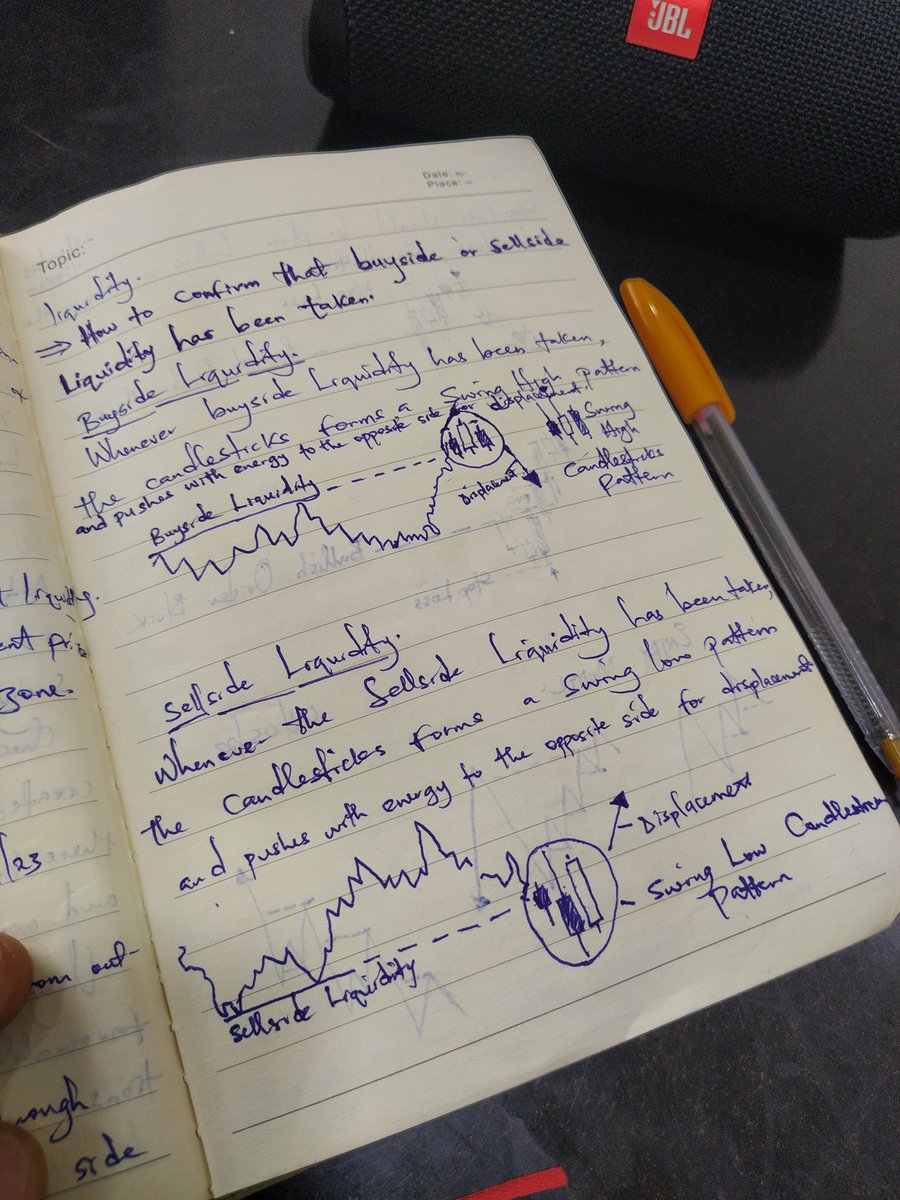 JBL
Date:
Place:
Topic:
liquidity.
⇒ How to confirm that buyside or sellside
Liquidity has been taken.
Buyside Liquidity.
Whenever buyside Liquidity has been taken,
the candlesticks forms a Swing High pattern
and pushes with energy to the opposite side for displacement.
Buyside Liquidity
Displacement
Swing
High
Candlesticks
Pattern
Sellside Liquidity.
Whenever the Sellside Liquidity has been taken,
the candlesticks forms a Swing Low pattern
and pushes with energy to the opposite side for displacement
Displacement
Swing Low Candlestick
Pattern
Sellside Liquidity
zone.
/23
side